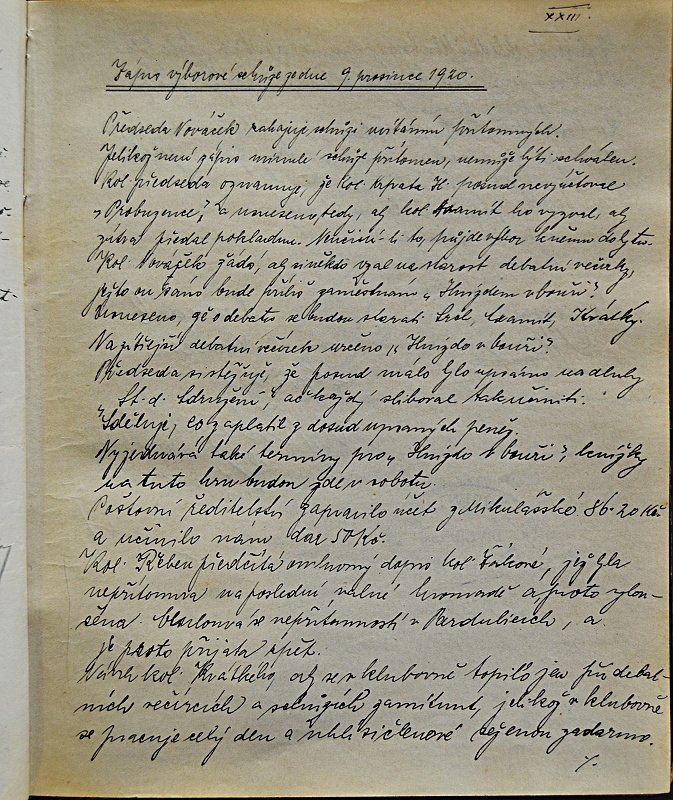 XXIII.
Zápis výborové schůze ze dne 9. prosince 1920.
Předseda Nováček zahajuje schůzi uvítáním přítomných.
Jelikož není zápis minulé schůze přítomen, nemůže býti schválen.
Kol. předseda oznamuje, že kol. Krpata H. posud nevyúčtoval
"Probuzence", a usneseno, tedy, aby kol. ho vyzval, aby
zítra předal pokladnu. Neučiní-li to, půjde výbor k němu do bytu.
Kol. Nováček žádá, aby si někdo vzal na starost debatní večírky,
ježto on sám bude příliš zaměstnán "Hnízdem v bouři".
Usneseno, že o debatu se budou starati Krátký.
Na zítřejší debatní večírek určeno "Hnízdo v bouři".
Předseda si stěžuje, že posud málo bylo upsáno na dluhy
"St. d. Sdružení", ač každý sliboval tak učiniti.
Sděluje, co zaplatil z dosud upsaných peněz.
Vyjednává také termíny pro "Hnízdo v bouři", knížky
na tuto hru budou zde v sobotu.
Poštovní ředitelství zapravilo účet z Mikulášské 86.20 Kč
a učinilo nám dar 50 Kč.
Kol. předčítá omluvný dopis kol. jež byla
nepřítomna na poslední valné hromadě a proto vylou-
čena. Omlouvá se nepřítomností v Pardubicích, a
je proto přijata zpět.
Návrh kol. Krátkého, aby se v klubovně topilo jen při debat-
ních večírcích a schůzích zamítnut, jelikož v klubovně
se pracuje celý den a uhlí si členové seženou zadarmo.
./.